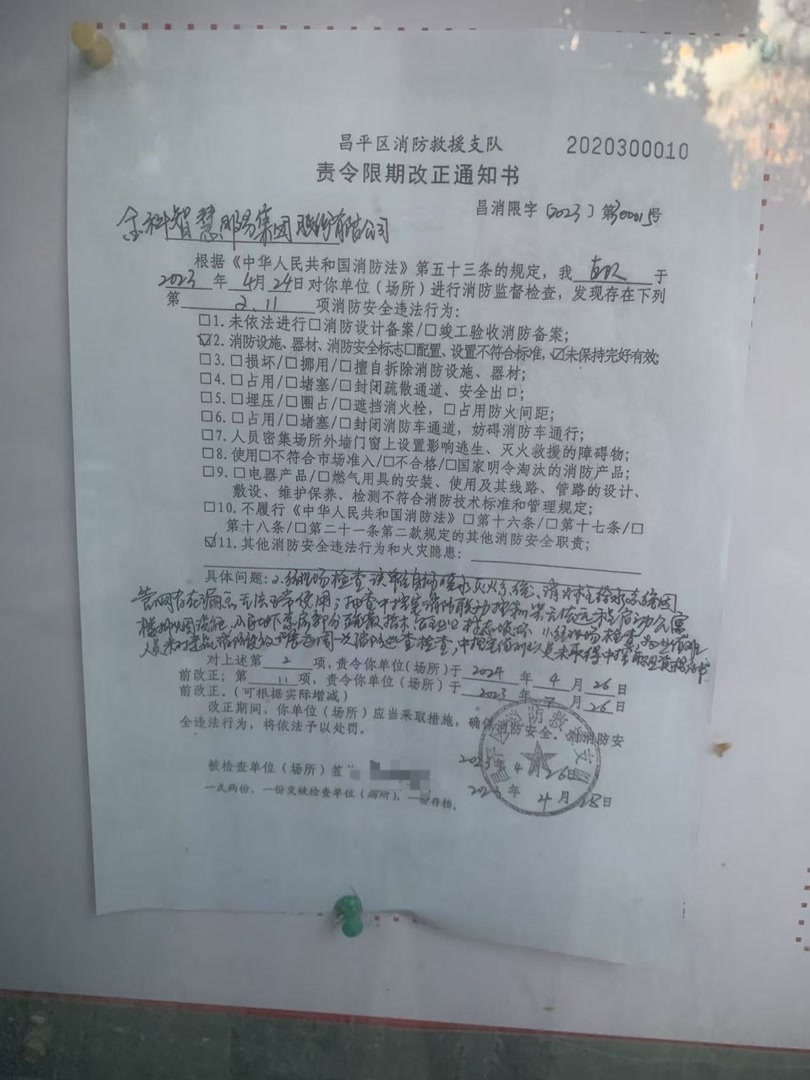 昌平区消防救援支队
2020300010
责令限期改正通知书
昌消限字〔2023〕第30015号
金科智慧服务集团股份有限公司
根据《中华人民共和国消防法》第五十三条的规定，我 于
2023 年 4月 24日对你单位（场所）进行消防监督检查，发现存在下列
第 2、11 项消防安全违法行为：
□1. 未依法进行□消防设计备案/□竣工验收消防备案；
☑2. 消防设施、器材、消防安全标志□配置、设置不符合标准，☑未保持完好有效；
□3. □损坏/□挪用/□擅自拆除消防设施、器材；
□4. □占用/□堵塞/□封闭疏散通道、安全出口；
□5. □埋压/□圈占/□遮挡消火栓，□占用防火间距；
□6. □占用/□堵塞/□封闭消防车通道，妨碍消防车通行；
□7. 人员密集场所外墙门窗上设置影响逃生、灭火救援的障碍物；
□8. 使用□不符合市场准入/□不合格/□国家明令淘汰的消防产品；
□9. □电器产品/□燃气用具的安装、使用及其线路、管路的设计、
敷设、维护保养、检测不符合消防技术标准和管理规定；
□10. 不履行《中华人民共和国消防法》□第十六条/□第十七条/□
第十八条/□第二十一条第二款规定的其他消防安全职责；
☑11. 其他消防安全违法行为和火灾隐患：
具体问题：2、经现场检查，该单位自动喷水灭火系统、消火栓给水系统因
管网存在漏点无法正常使用；抽查中控室消防联动控制器无法远程启动公寓
楼排烟风机
人员 每周一次 检查，中控室值班人员未取得中级职业资格证书
对上述第 2 项，责令你单位（场所）于 2024 年 4 月 26 日
前改正；第 11 项，责令你单位（场所）于 2023 年 7 月 26 日
前改正。（可根据实际增减）
改正期间，你单位（场所）应当采取措施，确保消防安全。对消防安
全违法行为，将依法予以处罚。
昌平区消防救援支队
被检查单位（场所）签
2023 年 4 月 26日
2023 年 4 月 28日
一式两份，一份交被检查单位（场所），一份存档。